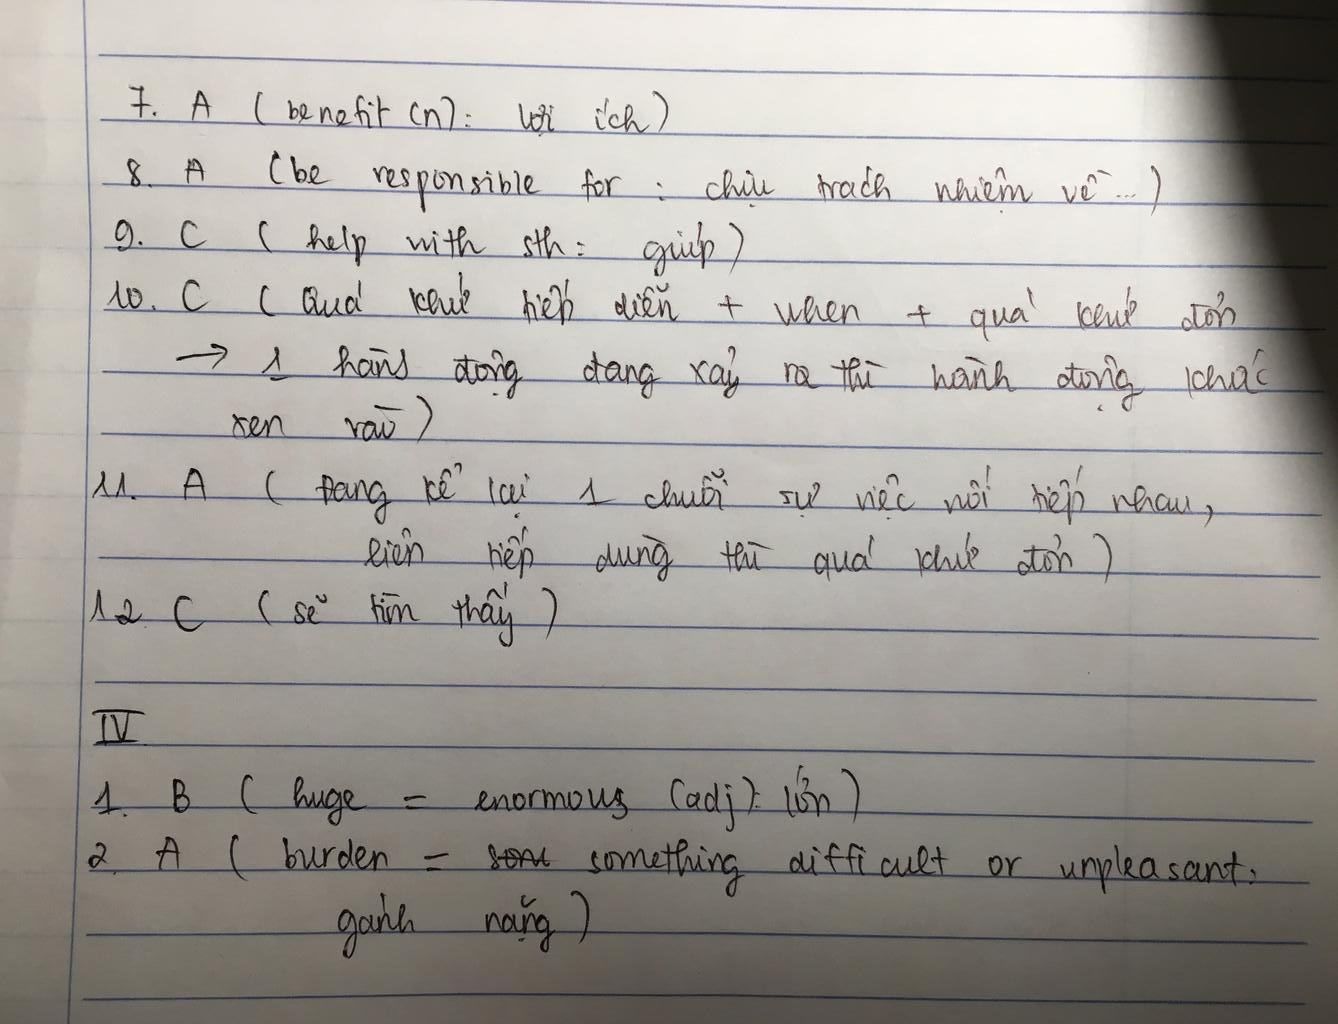 7. A ( benefit (n): lợi ích)
8. A (be responsible for : chịu trách nhiệm về ...)
9. C ( help with sth : giúp)
10. C ( Quá khứ tiếp diễn + when + quá khứ đơn
→ 1 hành động đang xảy ra thì hành động khác
xen vào)
11. A ( Đang kể lại 1 chuỗi sự việc nối tiếp nhau,
liên tiếp dùng thì quá khứ đơn)
12 C ( sẽ tìm thấy )
IV
1. B ( huge = enormous (adj): lớn)
2. A ( burden = something difficult or unpleasant:
gánh nặng)